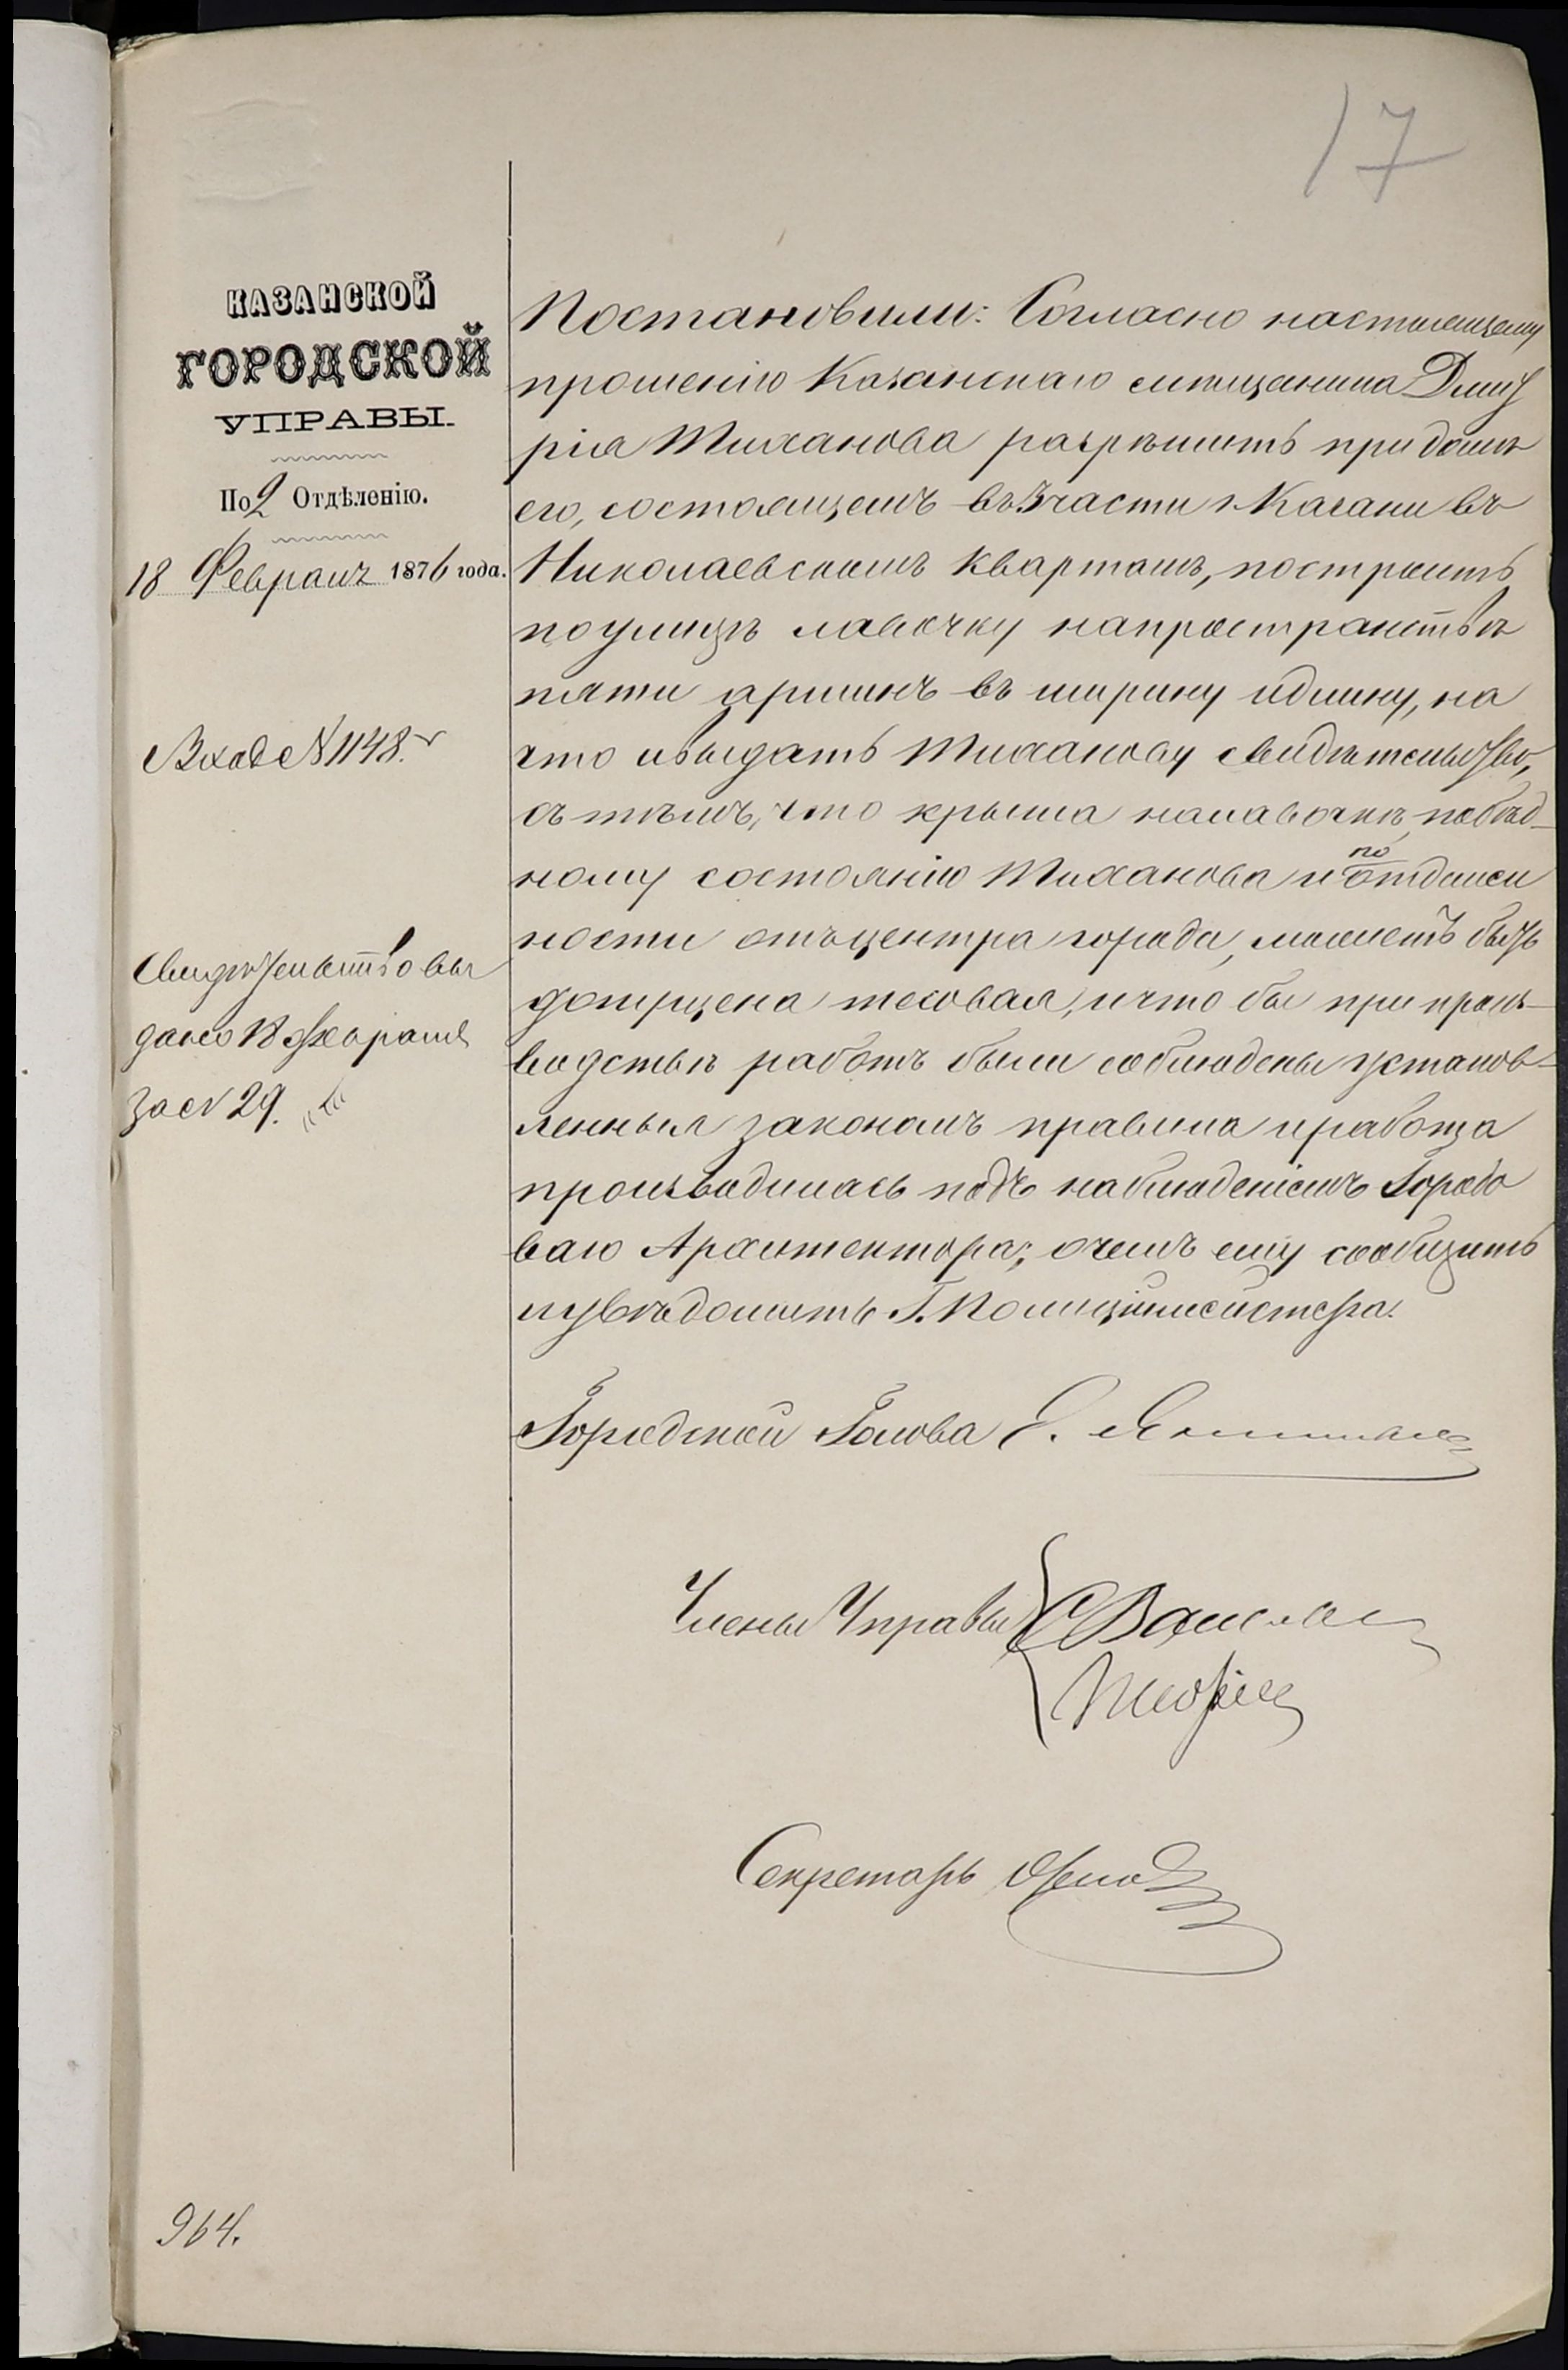 17
КАЗАНСКОЙ
ГОРОДСКОЙ
УПРАВЫ.
По 2 Отдѣленію.
18 Февраля 1876 года.
Вход №1148.
Свидѣтельство вы
дано 18 Февраля
за № 29.
Постановили: Согласно настоящему
прошенію Казанскаго мѣщанина Дмит
рія Тиханова разрѣшить при домѣ
его, состоящемъ въ 3 части г. Казани въ
Николаевскомъ кварталѣ, построить
по улицѣ лавочку на пространствѣ
пяти аршинъ въ ширину и длину, на
что и выдать Тиханову свидѣтельство,
съ тѣмъ, что крыша на лавочкѣ, по бѣд-
ному состоянію Тиханова и по отдален
ности отъ центра города, можетъ быть
допущена тесовая, и что бы при произ-
водствѣ работъ были соблюдены установ-
ленныя закономъ правила и работа
производилась подъ наблюденіемъ Городо
ваго Архитектора; о чемъ ему сообщить
и увѣдомить Г. Полиціймейстера.
Городской Голова
Члены Управы
Секретарь
964.